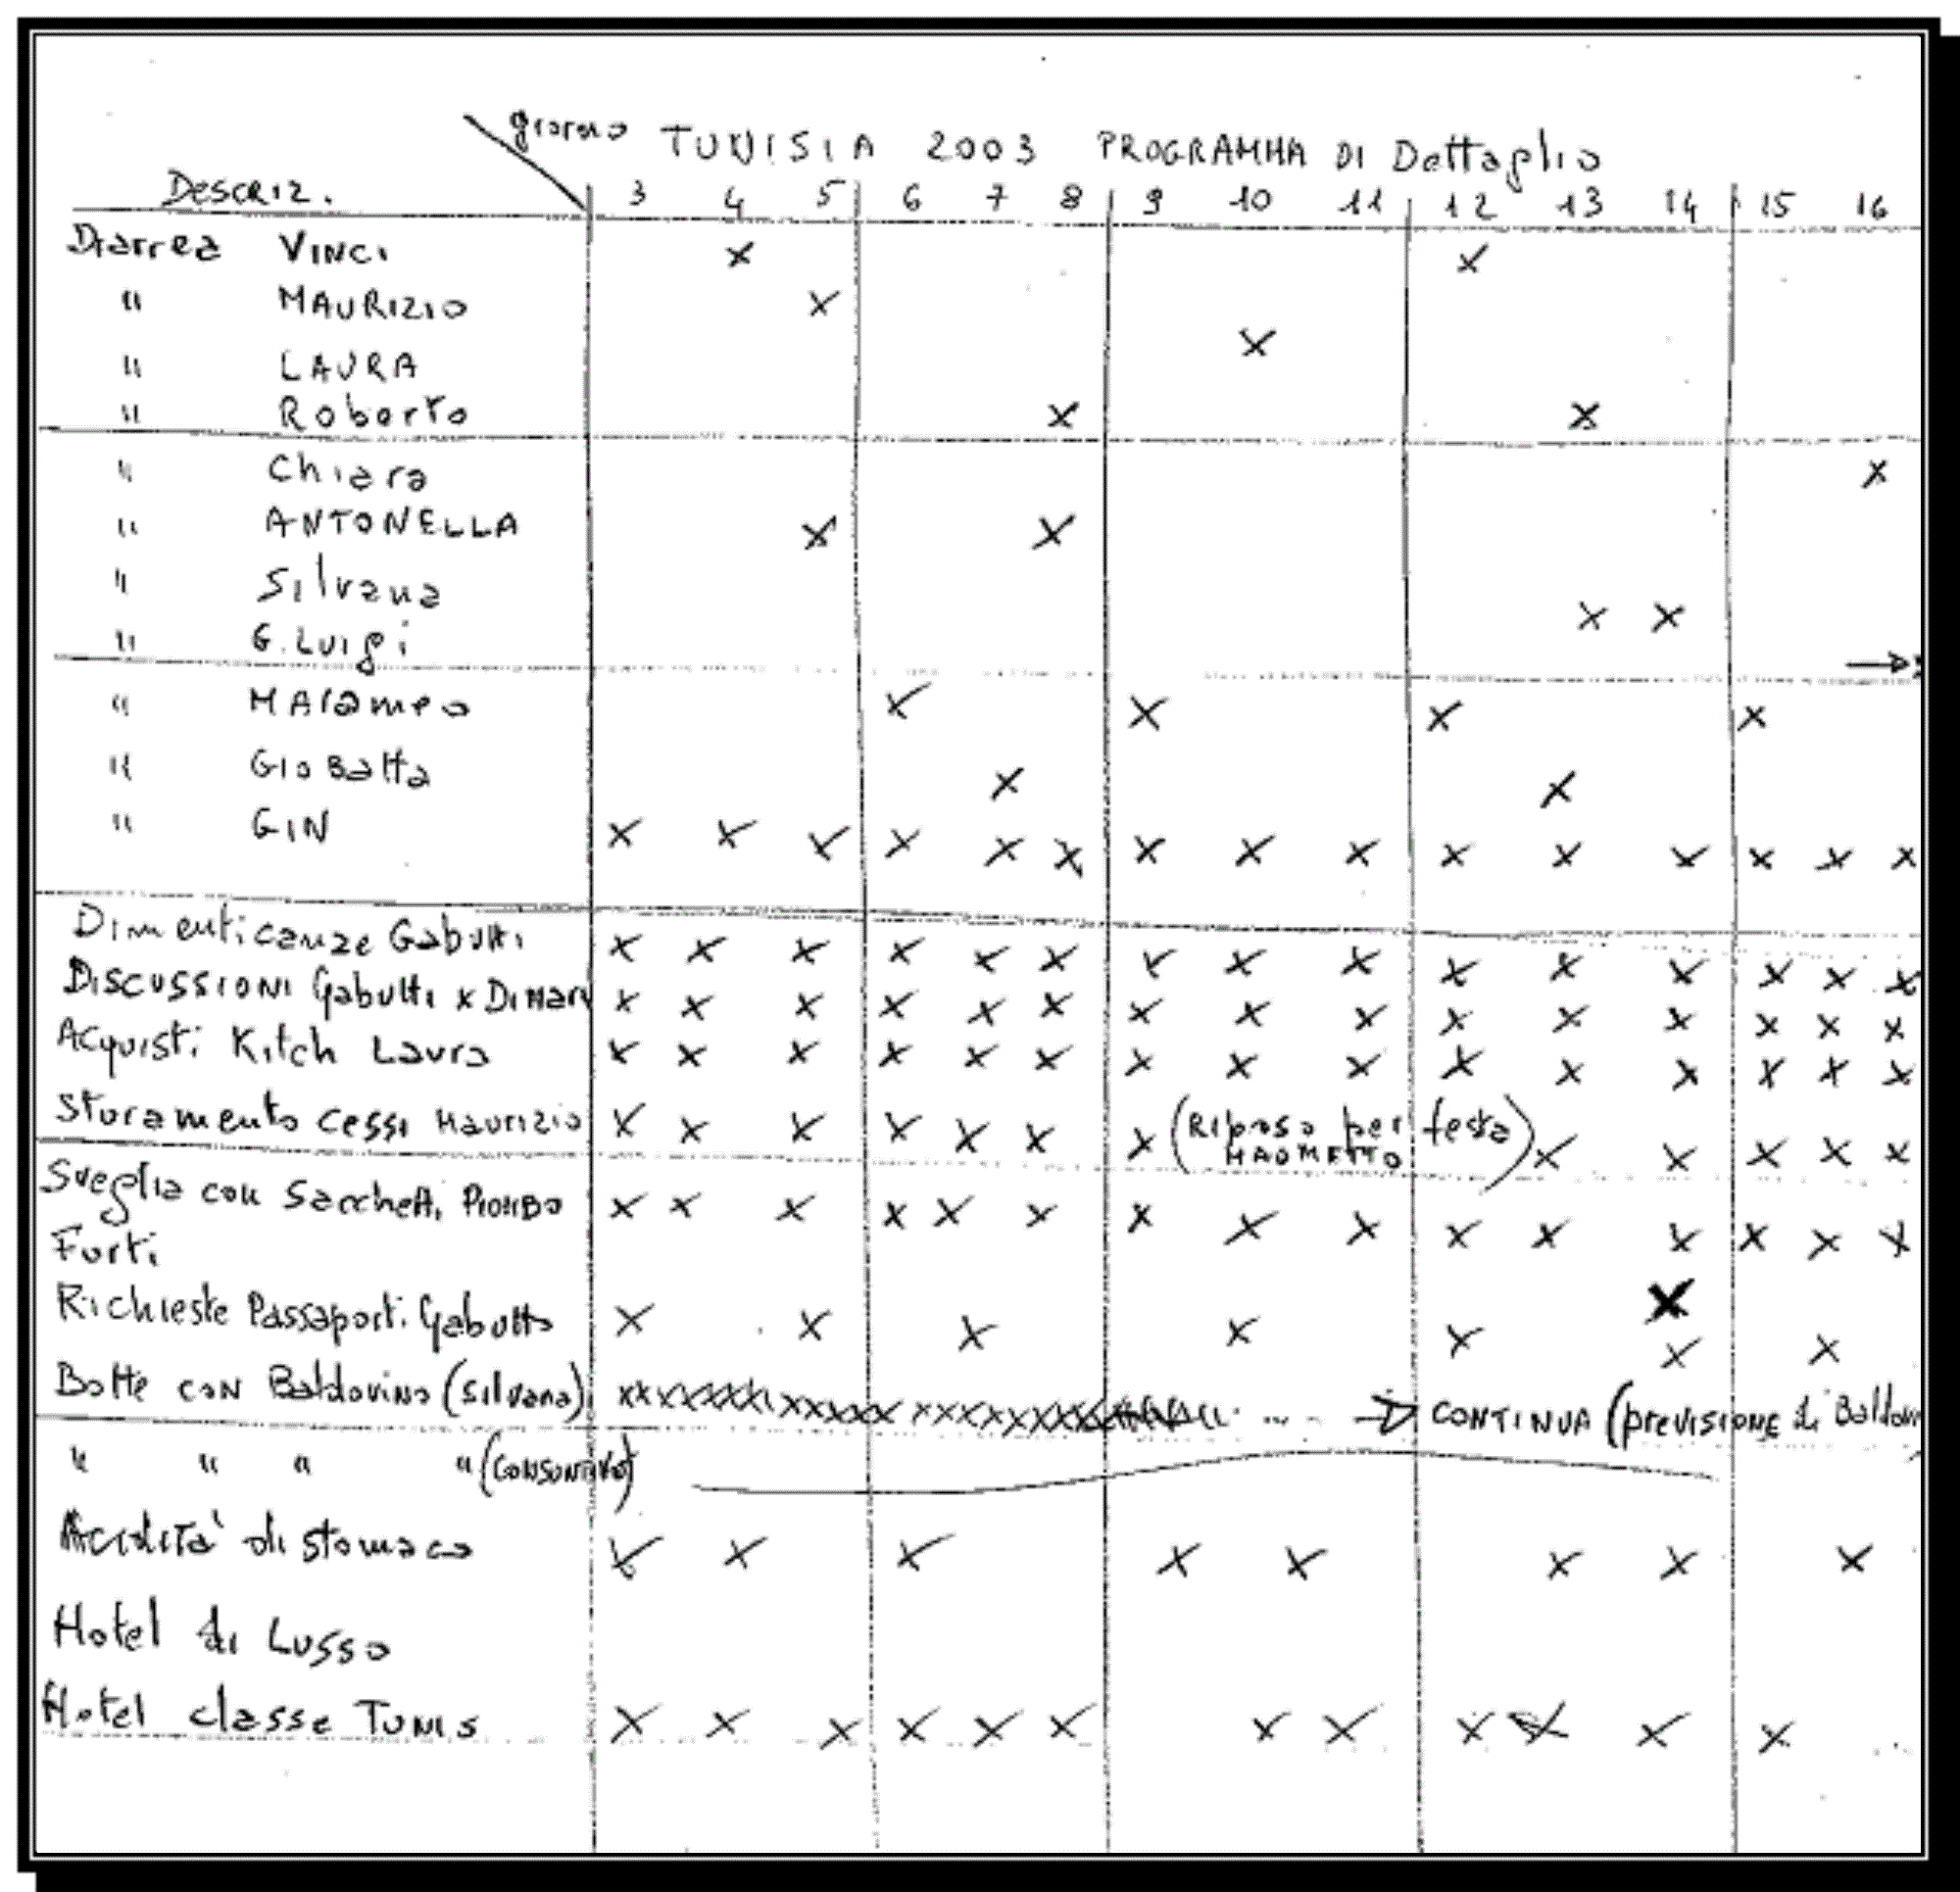 giorno TUNISIA 2003 PROGRAMMA DI Dettaglio
DESCRIZ. 3 4 5 6 7 8 9 10 11 12 13 14 15 16
Diarrea VINCI x x
" MAURIZIO x
" LAURA x
" Roberto x x
" Chiara x
" ANTONELLA x x
" Silvana x x
" G. Luigi →
" MARameo x x x x
" Gio Batta x x
" GIN x x x x x x x x x x x x x x x
Dimenticanze Gabutti x x x x x x x x x x x x x x x
DISCUSSIONI Gabutti x DiMari x x x x x x x x x x x x x x x
Acquisti Kitch Laura x x x x x x x x x x x x x x x
Sturamento cessi Maurizio x x x x x x x (Riposo per festa MAOMETTO) x x x x x
Sveglia con Sacchetti PIOMBO x x x x x x x x x x x x x x x
Furti x
Richieste Passaporti Gabutto x x x x x x x
Botte con Baldovino (Silvana) → CONTINUA (previsione di Baldovi
" " " " (CONSUNTIVO)
Acidità di stomaco x x x x x x x x
Hotel di Lusso
Hotel classe TUNIS x x x x x x x x x x x x